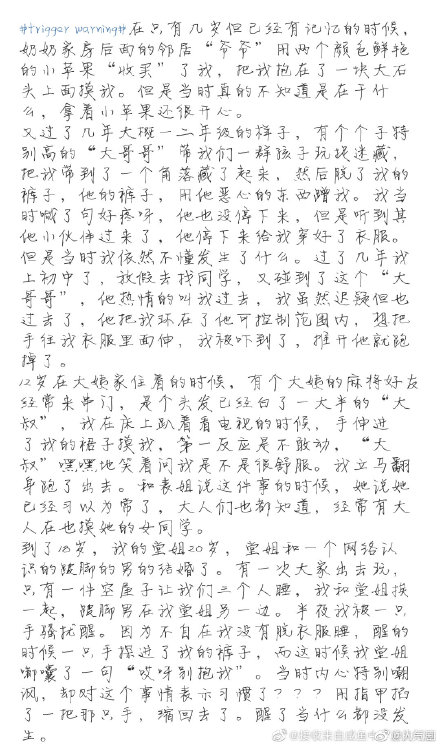 #trigger warning#在只有几岁但已经有记忆的时候，
奶奶家房后面的邻居“爷爷”用两个颜色鲜艳
的小苹果“收买”了我，把我抱在了一块大石
头上面摸我。但是当时真的不知道是在干什
么，拿着小苹果还很开心。
又过了几年大概一二年级的样子，有个个子特
别高的“大哥哥”带我们一群孩子玩捉迷藏，
把我带到了一个角落藏了起来，然后脱了我的
裤子，他的裤子，用他恶心的东西蹭我。我当
时喊了句好疼呀，他也没停下来，但是听到其
他小伙伴过来了，他停下来给我穿好了衣服。
但是当时我依然不懂发生了什么。过了几年我
上初中了，放假去找同学，又碰到了这个“大
哥哥”，他热情的叫我过去，我虽然迟疑但也
过去了，他把我环在了他可控制范围内，想把
手往我衣服里面伸，我被吓到了，推开他就跑
掉了。
12岁在大姨家住着的时候，有个大姨的麻将好友
经常来串门，是个头发已经白了一大半的“大
叔”，我在床上趴着看电视的时候，手伸进
了我的裙子摸我，第一反应是不敢动，“大
叔”嘿嘿地笑着问我是不是很舒服。我立马翻
身跑了出去。和表姐说这件事的时候，她说她
已经习以为常了，大人们也都知道，经常有大
人在也摸她的女同学。
到了18岁，我的堂姐20岁，堂姐和一个网络认
识的跛脚的男的结婚了。有一次大家出去玩，
只有一件空屋子让我们三个人睡，我和堂姐挨
一起，跛脚男在我堂姐另一边。半夜我被一只
手骚扰醒。因为不自在我没有脱衣服睡，醒的
时候一只手摸进了我的裤子，而这时候我堂姐
嘟囔了一句“哎呀别抱我”。当时内心特别嘲
讽，却对这个事情表示习惯了？？？用指甲掐
了一把那只手，缩回去了。醒了当什么都没发
生。